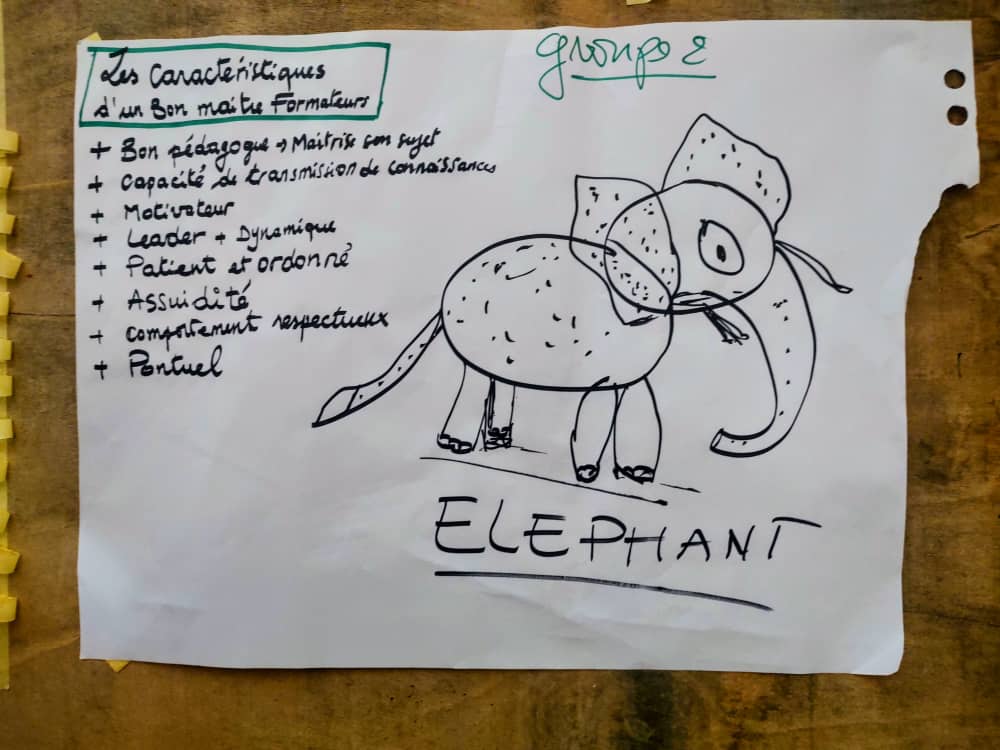 groupe 2
Les Caractéristiques
d'un Bon maitre Formateurs
+ Bon pédagogue → Maitrise son sujet
+ Capacité de transmission de connaissances
+ Motivateur
+ Leader + Dynamique
+ Patient et ordonné
+ Assuidité
+ comportement respectueux
+ Pontuel
ELEPHANT